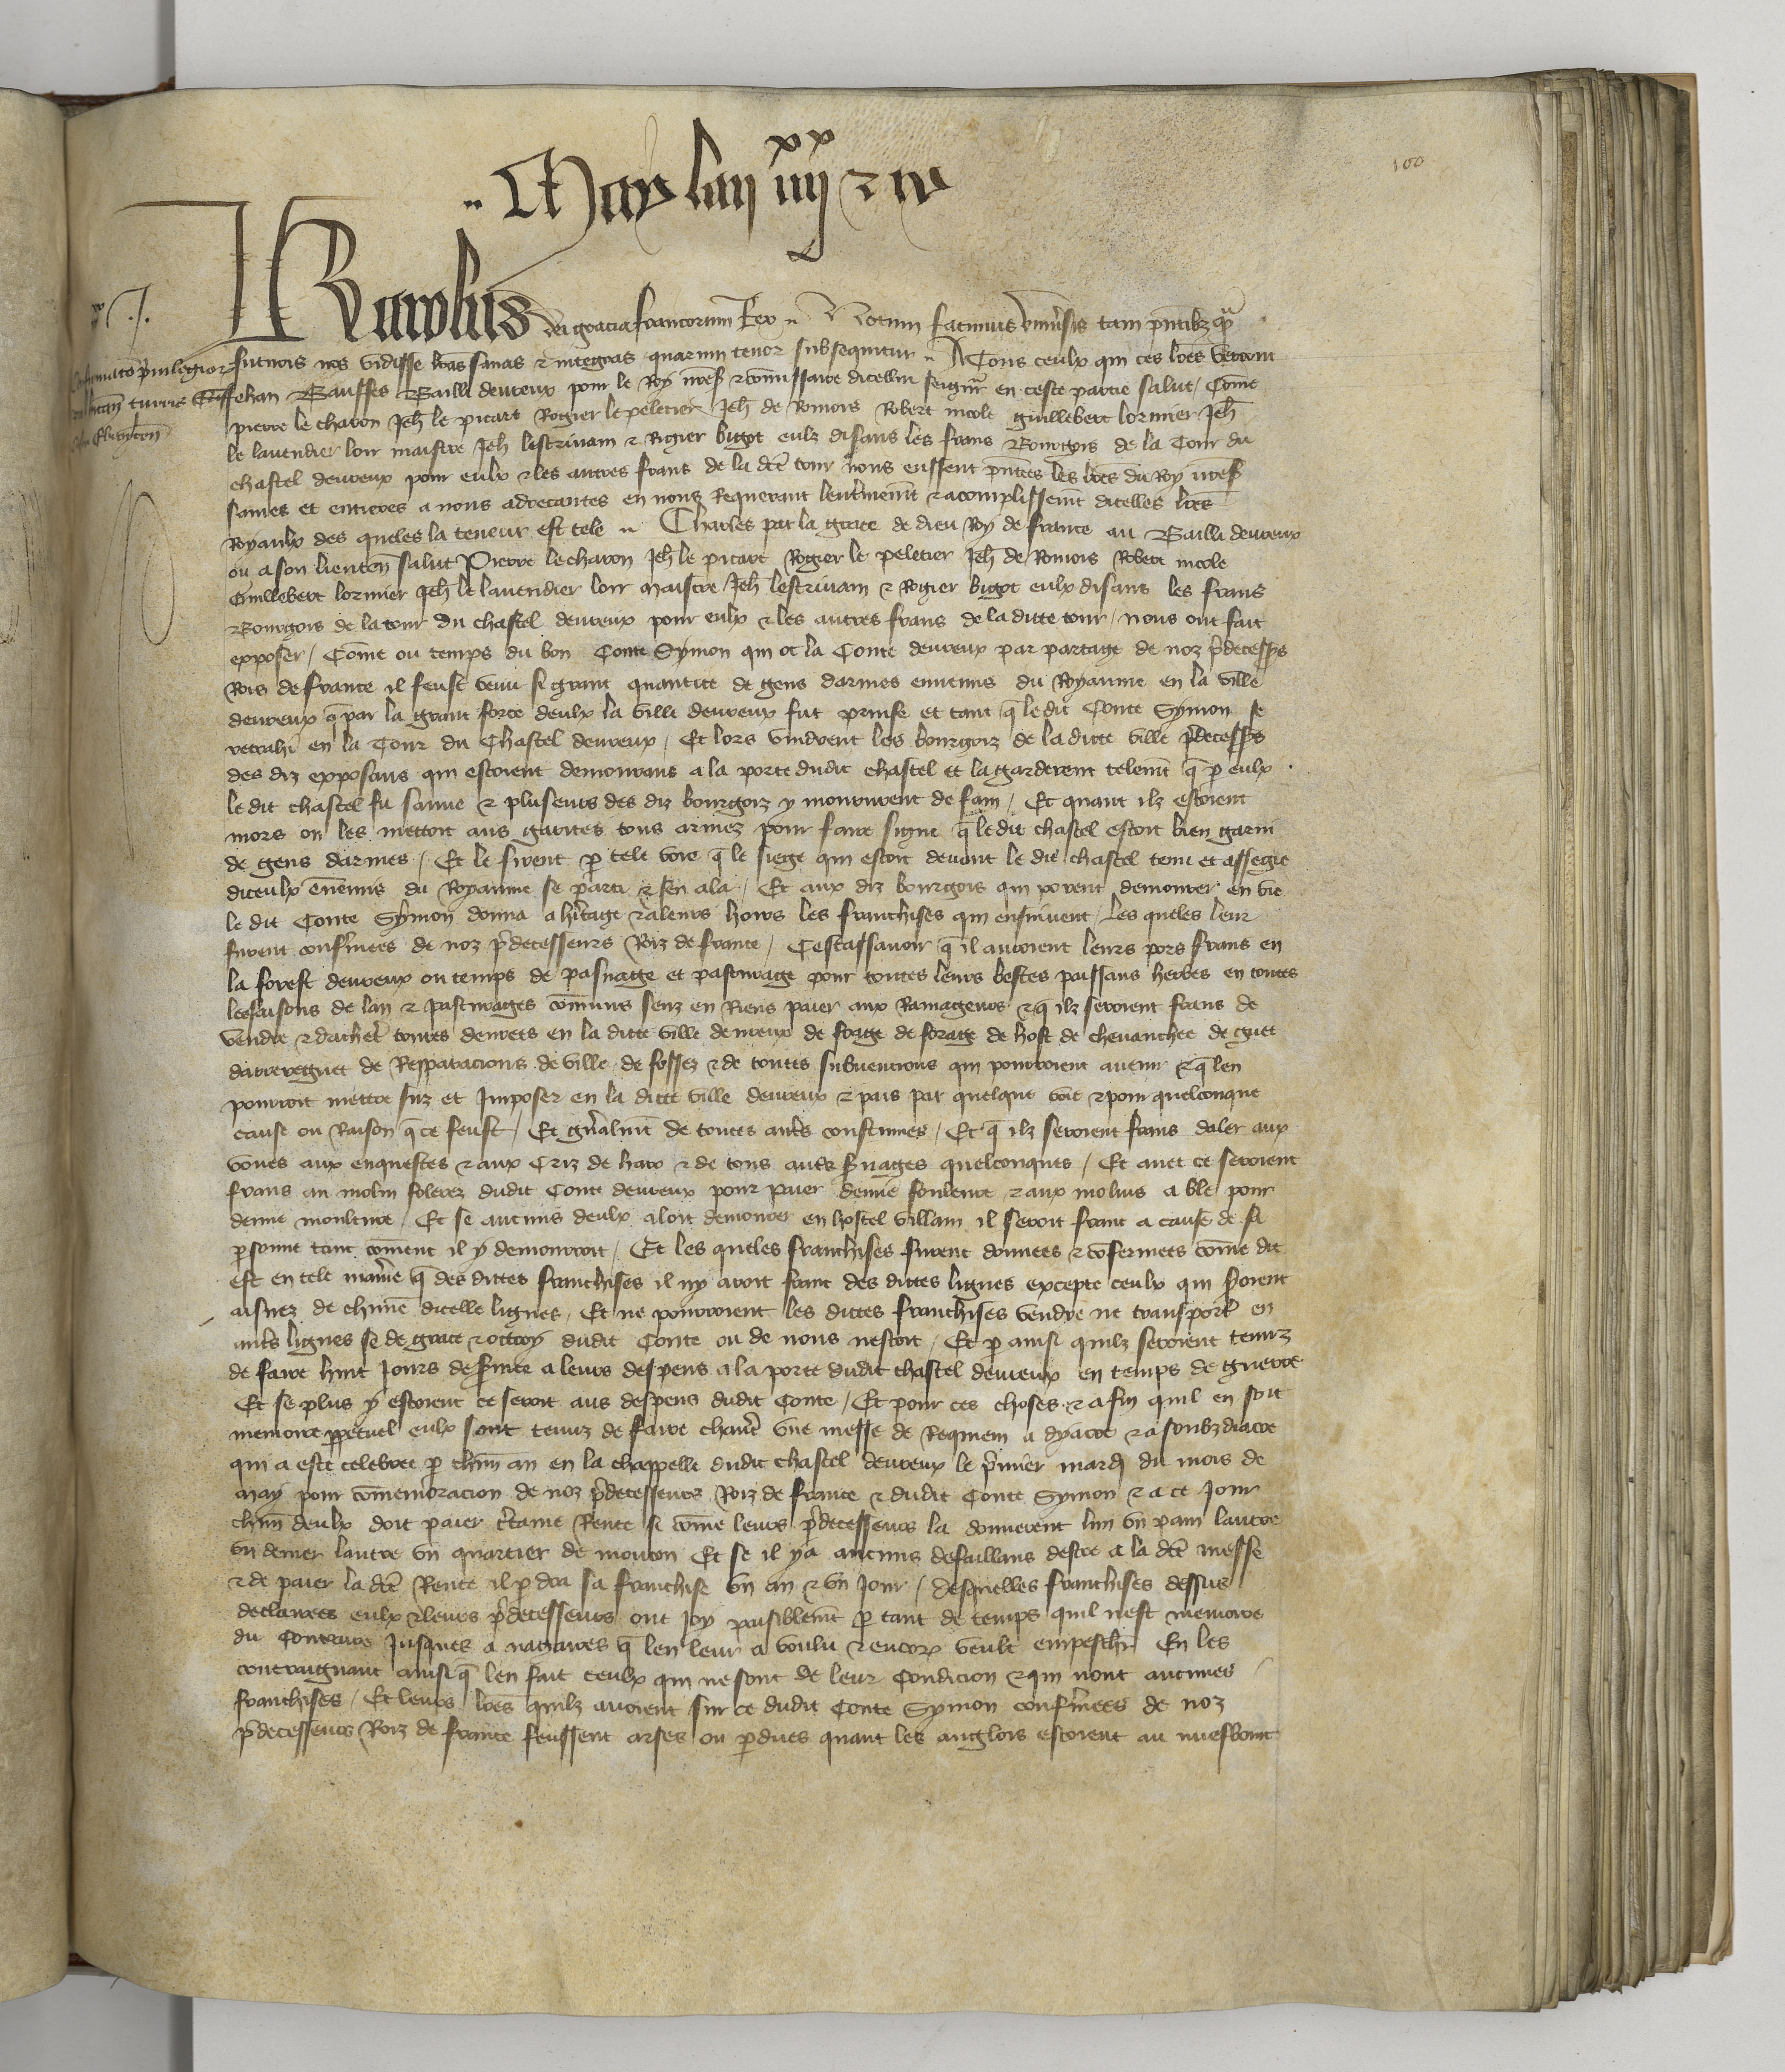 100
May lan iiij xx & iiii
Karolus dei gracia francorum Rex Notum facimus univsis tam pntibz qm
futuris nos vidisse lras sanas & integras quarum tenor subsequitur A Tous ceulx qui ces lres verront
Jehan Bauffes Bailli deureux pour le Roy nres & comissaire dicellui seignr en ceste partie salut / Come
pierre le charon Jeh le picart Rogier le peletier Jeh de Romois Robert nicole guillebert lormier Jeh
le lauendier lour maistre Jeh lescriuain & Rogier bigot eulz disans les frans Bourgois de la Tour du
chastel deureux pour eulx & les autres frans de la dce tour nous eussent pntees les lres du Roy nres
saines et entieres a nous adrecantes en nous Requerant lenterinemt & acomplissemt dicelles lres
Royaulx des queles la teneur est tele Charles par la grace de dieu Roy de france au Bailli deureux
ou a son lieuten salut Pierre le charon Jeh le picart Rogier le peletier Jeh de Romois Robert nicole
Guillebert lormier Jeh le lauendier lour maistre / Jeh lescriuain & Rogier bigot eulx disans les frans
Bourgois de la tour du chastel deureux pour eulx & les autres frans de la ditte tour / nous ont fait
exposer / Come ou temps du bon Conte Symon qui ot la Conte deureux par partage de noz pdecesss
Rois de france il feust venu si grant quantite de gens darmes ennemis du Royaume en la ville
deureux q par la grant force deulx la ville deureux fut prinse et tant q le dit Conte Symon se
retrahi en la Tour du Chastel deureux / Et lors vindrent les bourgoiz de la ditte ville pdecesss
des diz exposans qui estoient demourans a la porte dudit chastel et la garderent telemt q p eulx
le dit chastel fu sauue & pluseurs des diz bourgoiz y moururent de fain / Et quant ilz estoient
mors on les mettoit aus garites tous armez pour faire signe q le dit chastel estoit bien garni
de gens darmes / Et le firent p tele voie q le siege qui estoit deuant le dit chastel tenu et assegie
diceulx enemis du Royaume se parti & sen ala / Et aux diz bourgois qui porent demourer en vie
le dit Conte Symon donna a hitage & a leurs hoirs les franchises qui ensuiuent / les queles leur
furent confmees de noz pdecesseurs Roiz de france / Cestassauoir q il auroient leurs pors frans en
la forest deureux ou temps de pasnage et pasturage pour toutes leurs bestes paissans herbes en toutes
les saisons de lan & pasturages comuns senz en Riens paier aux Ramageurs & q ilz seroient frans de
vendre & dacheter toutes denrees en la ditte ville deureux de forge de forage de host de cheuauchee de guet
darrereguet de Repparacions de ville de fossez & de toutes subuencions qui pourroient auenir & q len
pourroit mettre suz et Imposer en la ditte ville deureux & pais par quelque voie & pour quelconque
cause ou Raison q ce feust / Et gnalmt de toutes auts coustumes / Et q ilz seroient frans daler aux
veues aux enquestes & aux Criz de haro & de tous auts suages quelconques / Et auec ce seroient
frans au molin folerez dudit Conte deureux pour paier demie foulerie & aux molins a ble pour
demie mouture / Et se aucuns deulx aloit demourer en hostel villain il seroit franc a cause de sa
psonne tant coment il y demourroit / Et les queles franchises furent donnees & cofermees come dit
est en tele maniere q des dittes franchises il ny aroit franc des dittes lignes excepte ceulx qui soient
aisnez de chune dicelle lignes / Et ne pourroient les dittes franchises vendre ne transporter en
auts lignes se de grace & ottroy dudit Conte ou de nous nestoit / Et p ainsi quilz seroient tenuz
de faire huit Jours de suice a leurs despens a la porte dudit chastel deureux en temps de guerre
Et se plus y estoient ce seroit aus despens dudit Conte / Et pour ces choses & afin quil en soit
memoire ppetuel eulx sont tenuz de faire chanter vne messe de Requiem a dyacre & a soubzdiacre
qui a este celebree p chun an en la chappelle dudit chastel deureux le pmier mardi du mois de
May pour comemoracion de noz pdecesseurs Roiz de france & dudit Conte Symon & a ce Jour
chun deulx doit paier ctaine Rente si come leurs pdecesseurs la donnerent lun vn pain lautre
vn denier lautre vn quartier de mouton Et se il y a aucuns defaillans destre a la dce messe
& de paier la dce Rente il pdra sa franchise vn an & vn Jour / Desquelles franchises dessus
declairees eulx & leurs pdecesseurs ont Joy paisiblemt p tant de temps quil nest memoire
du contraire Jusques a nagaires q len leur a voulu & encores veult empeschr En les
contraignant ainsi q len fait ceulx qui ne sont de leur condicion & qui nont aucunes
franchises / Et leurs lres quilz auoient sur ce dudit Conte Symon confmees de noz
pdecesseurs Roiz de france feussent arses ou pdues quant les anglois estoient au nuefbourc